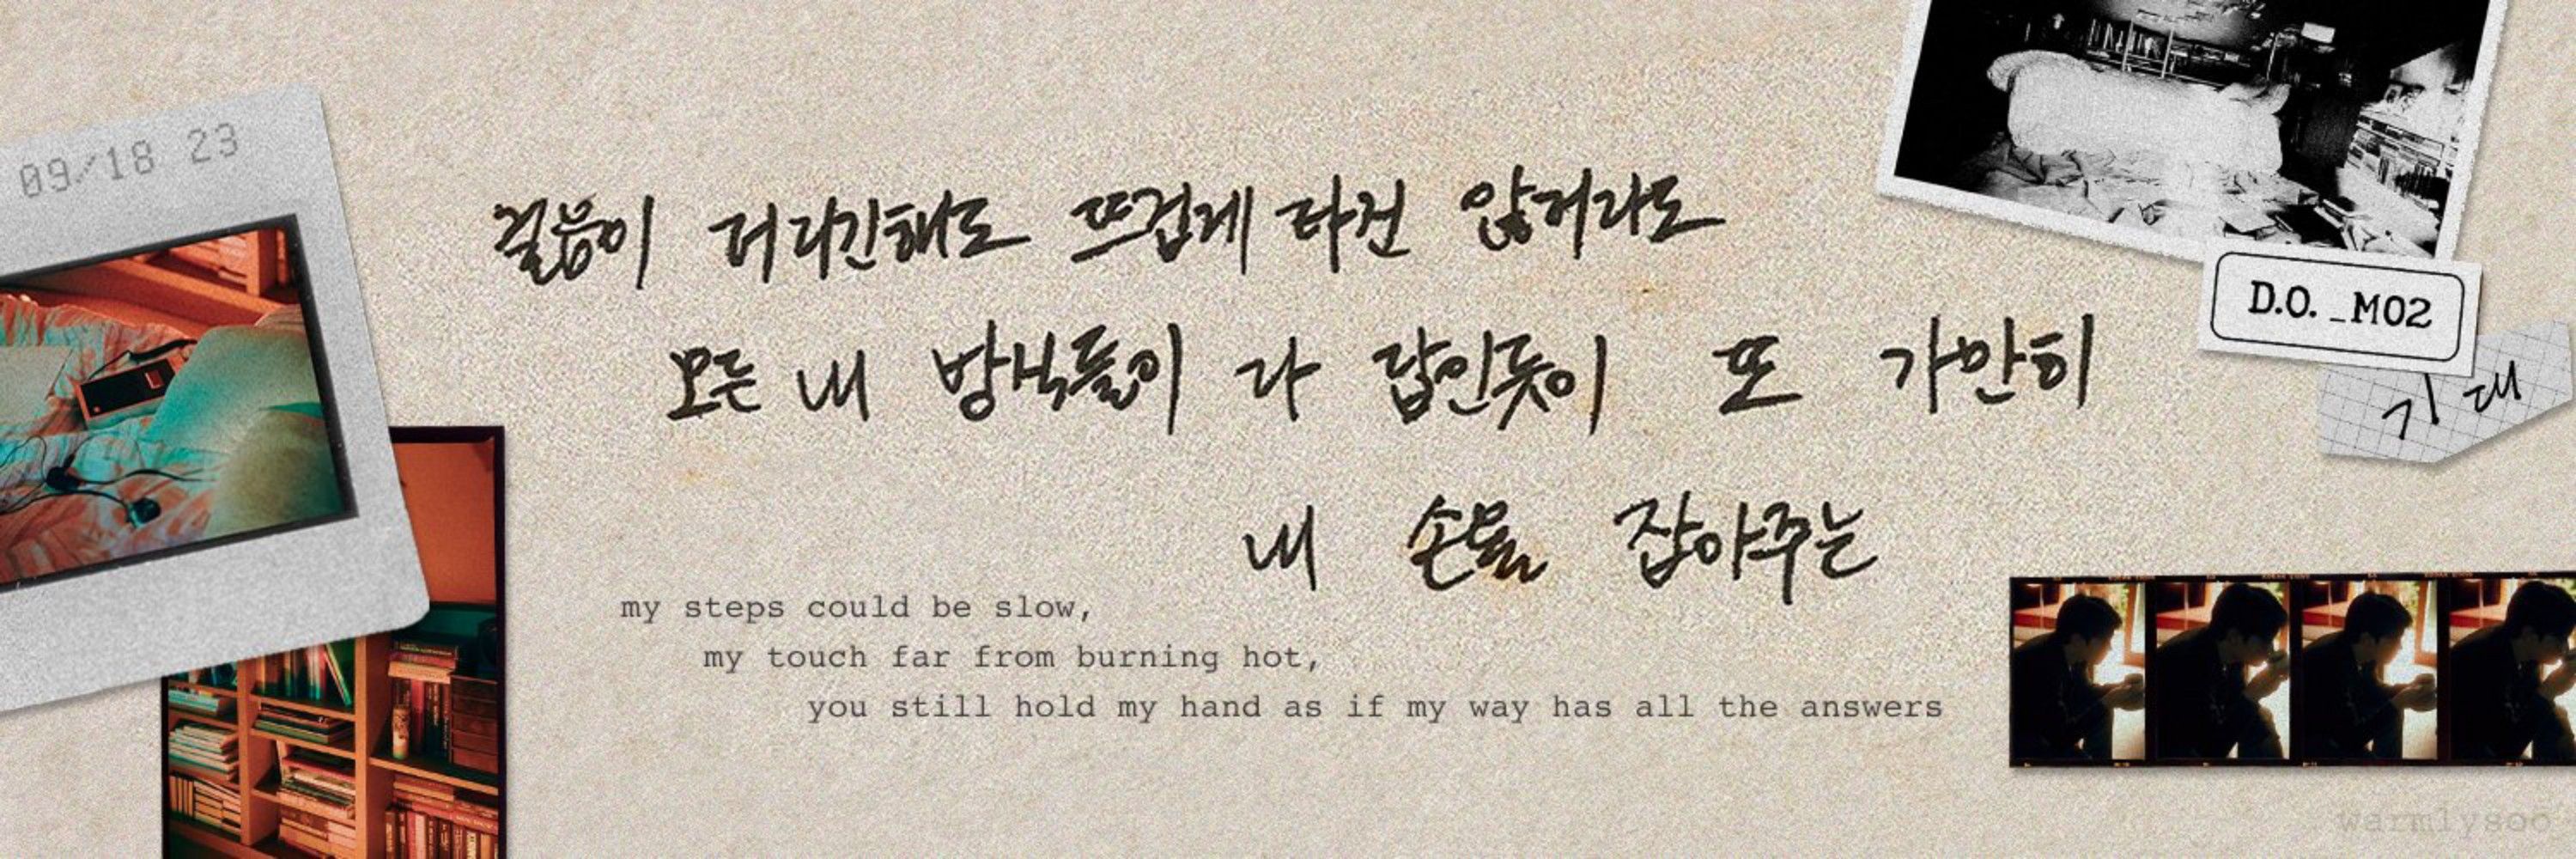 09/18 23
걸음이 더디긴해도 뜨겁게 타진 않더라도
모든 내 방식들이 다 답인듯이 또 가만히
내 손을 잡아주는
my steps could be slow,
my touch far from burning hot,
you still hold my hand as if my way has all the answers
D.O._M02
기대
warmlysoo